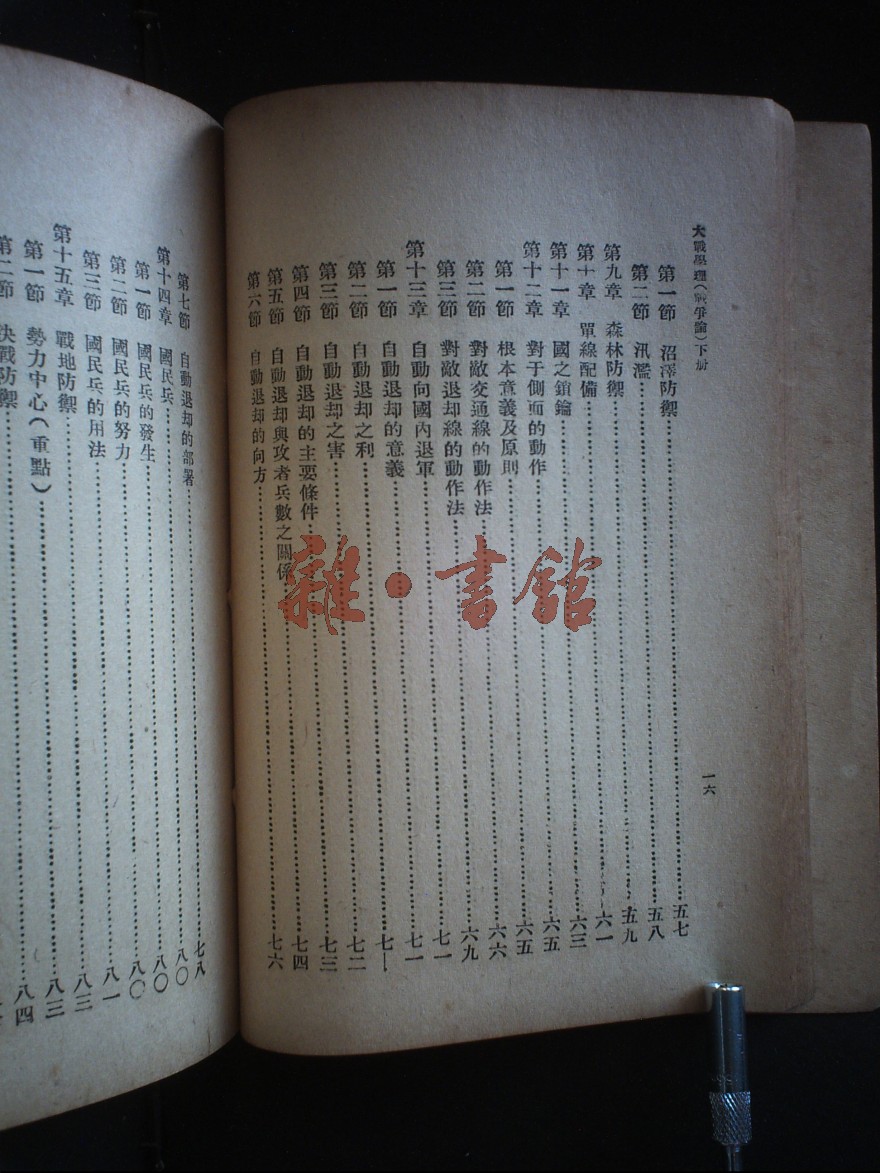 大戰學理(戰爭論)下册
一六
第一節 沼澤防禦……五七
第二節 汎濫……五八
第九章 森林防禦……五九
第十章 單線配備……六一
第十一章 國之鎖鑰……六三
第十二章 對于側面的動作……六五
第一節 根本意義及原則……六五
第二節 對敵交通線的動作法……六六
第三節 對敵退却線的動作法……六九
第十三章 自動向國內退軍……七一
第一節 自動退却的意義……七一
第二節 自動退却之利……七一
第三節 自動退却之害……七二
第四節 自動退却的主要條件……七三
第五節 自動退却與攻者兵數之關係……七四
第六節 自動退却的向方……七六
第七節 自動退却的部署……七八
第十四章 國民兵……八〇
第一節 國民兵的發生……八〇
第二節 國民兵的努力……八〇
第三節 國民兵的用法……八一
第十五章 戰地防禦……八三
第一節 勢力中心(重點)……八三
第二節 決戰防禦……八四
雜·書館